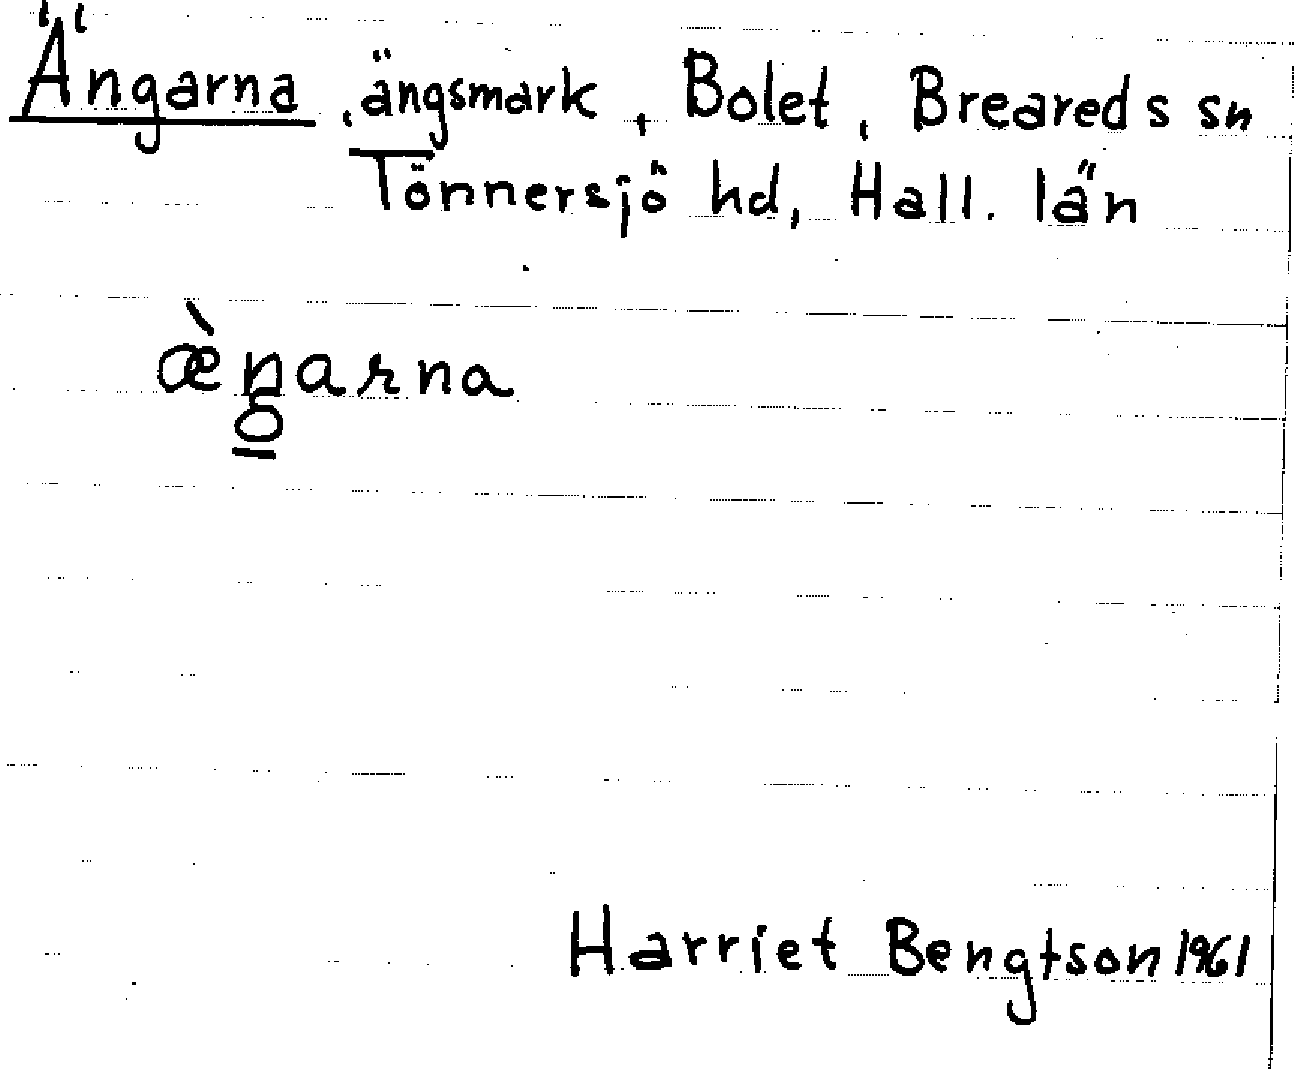 Ängarna, ängsmark, Bolet, Breareds sn
Tönnersjö hd, Hall. län
æ̀ŋarna
Harriet Bengtson 1961